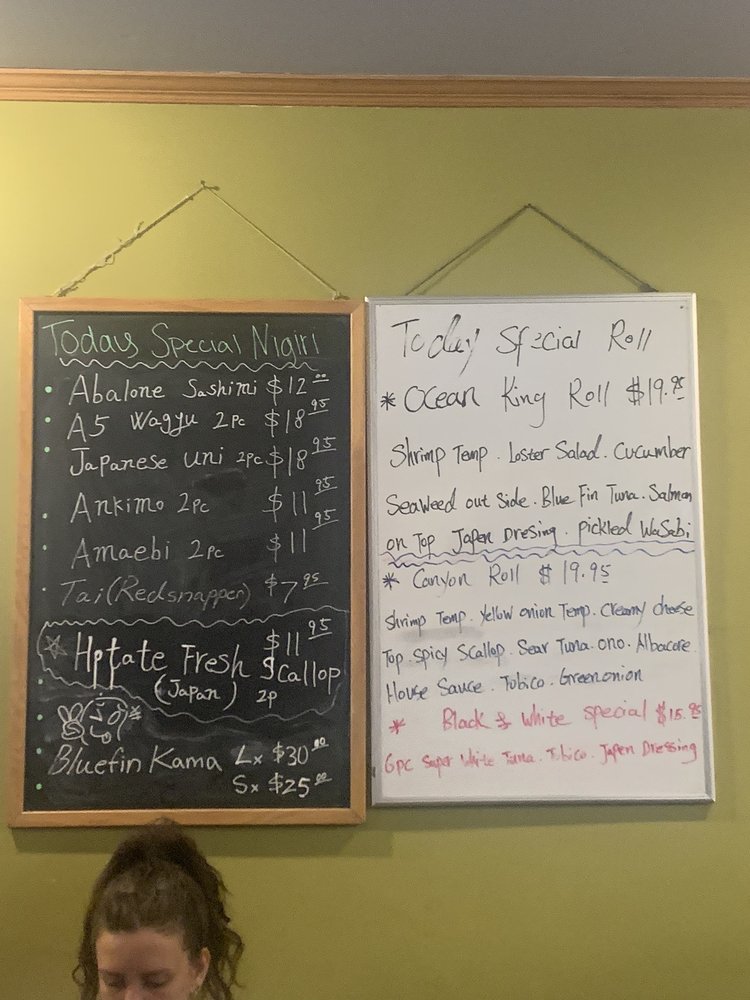 Todays Special Nigiri
Abalone Sashimi $12.00
A5 Wagyu 2pc $18.95
Japanese uni 2pc $18.95
Ankimo 2pc $11.95
Amaebi 2pc $11.95
Tai (Redsnapper) $7.95
Hptate Fresh Scallop $11.95
(Japan) 2p
Bluefin Kama Lx $30.00
Sx $25.00
Today Special Roll
* Ocean King Roll $19.95
Shrimp Temp. Loster Salad. Cucumber
Seaweed out Side. Blue Fin Tuna. Salmon
on Top Japen Dresing. pickled WaSabi
* Canyon Roll $19.95
Shrimp Temp. Yellow onion Temp. Creamy cheese
Top. Spicy Scallop. Sear Tuna. ono. Albacore
House Sauce. Tobico. Greenonion
* Black & White Special $15.95
6pc Super White Tuna. Tobico. Japen Dressing